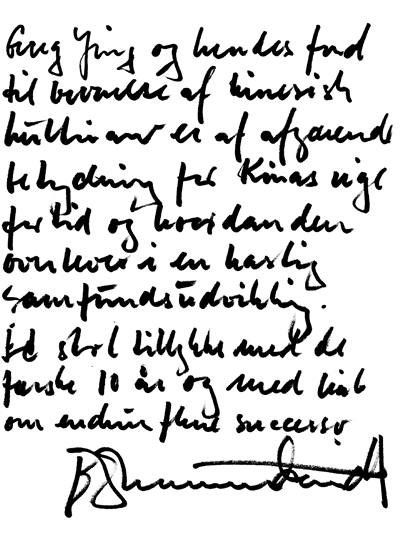 Gong Ying og hendes fond
til bevarelse af kinesisk
kulturarv er af afgørende
betydning for Kinas rige
fortid og hvordan den
overlever i en hastig
samfundsudvikling.
Et stort tillykke med de
første 10 år og med håb
om endnu flere succeser